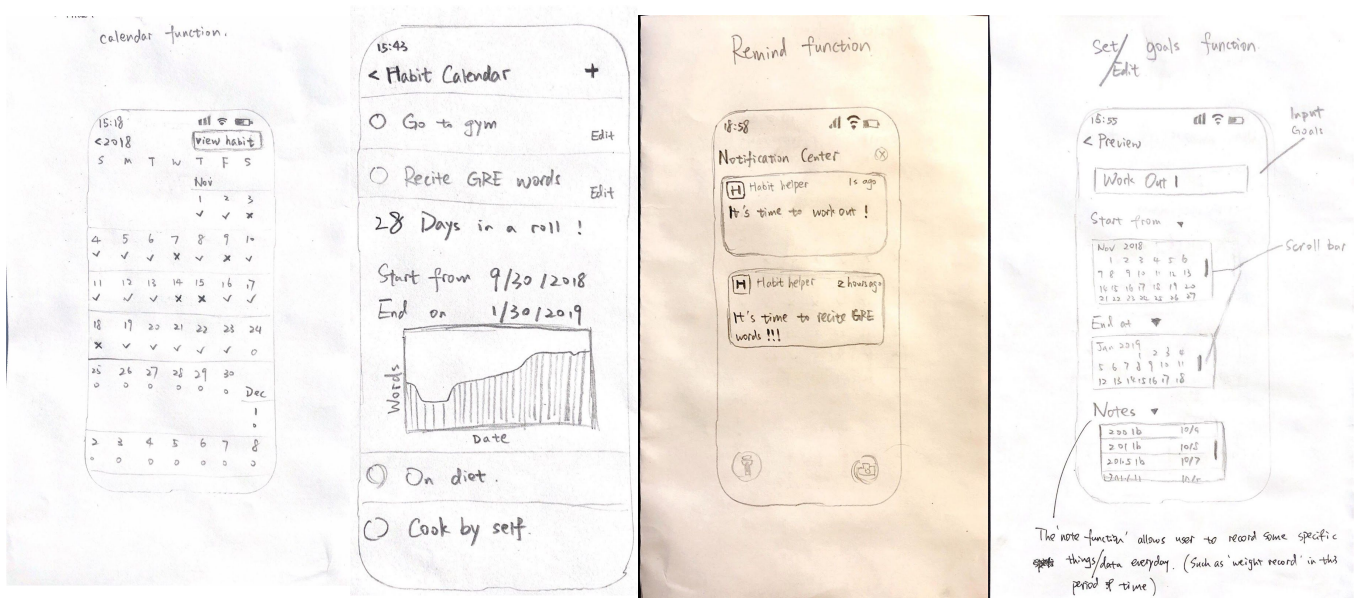 calendar function.
15:18
<2018
view habit
S M T W T F S
Nov
1 2 3
✓ ✓ ×
4 5 6 7 8 9 10
✓ ✓ ✓ × ✓ × ✓
11 12 13 14 15 16 17
✓ ✓ ✓ × × ✓ ✓
18 19 20 21 22 23 24
× ✓ ✓ ✓ ✓ ✓ o
25 26 27 28 29 30
o o o o o o
Dec
1
o
2 3 4 5 6 7 8
o o o o o o o
15:43
< Habit Calendar +
Go to gym
Edit
Recite GRE words
Edit
28 Days in a roll !
Start from 9/30/2018
End on 1/30/2019
Words
Date
On diet.
Cook by self.
Remind function
18:58
Notification Center
H Habit helper 1s ago
It's time to work out !
H Habit helper 2 hours ago
It's time to recite GRE
words !!!
Set/ goals function
Edit
15:55
< Preview
Work Out
Input
Goals
Start from
Nov 2018
1 2 3 4 5 6
7 8 9 10 11 12 13
14 15 16 17 18 19 20
21 22 23 24 25 26 27
Scroll bar
End at
Jan 2019
1 2 3 4
5 6 7 8 9 10 11
12 13 14 15 16 17 18
Notes
200 lb 10/9
201 lb 10/8
201.5 lb 10/7
The 'note function' allows user to record some specific
things/data everyday. (Such as 'weight record' in this
period of time)